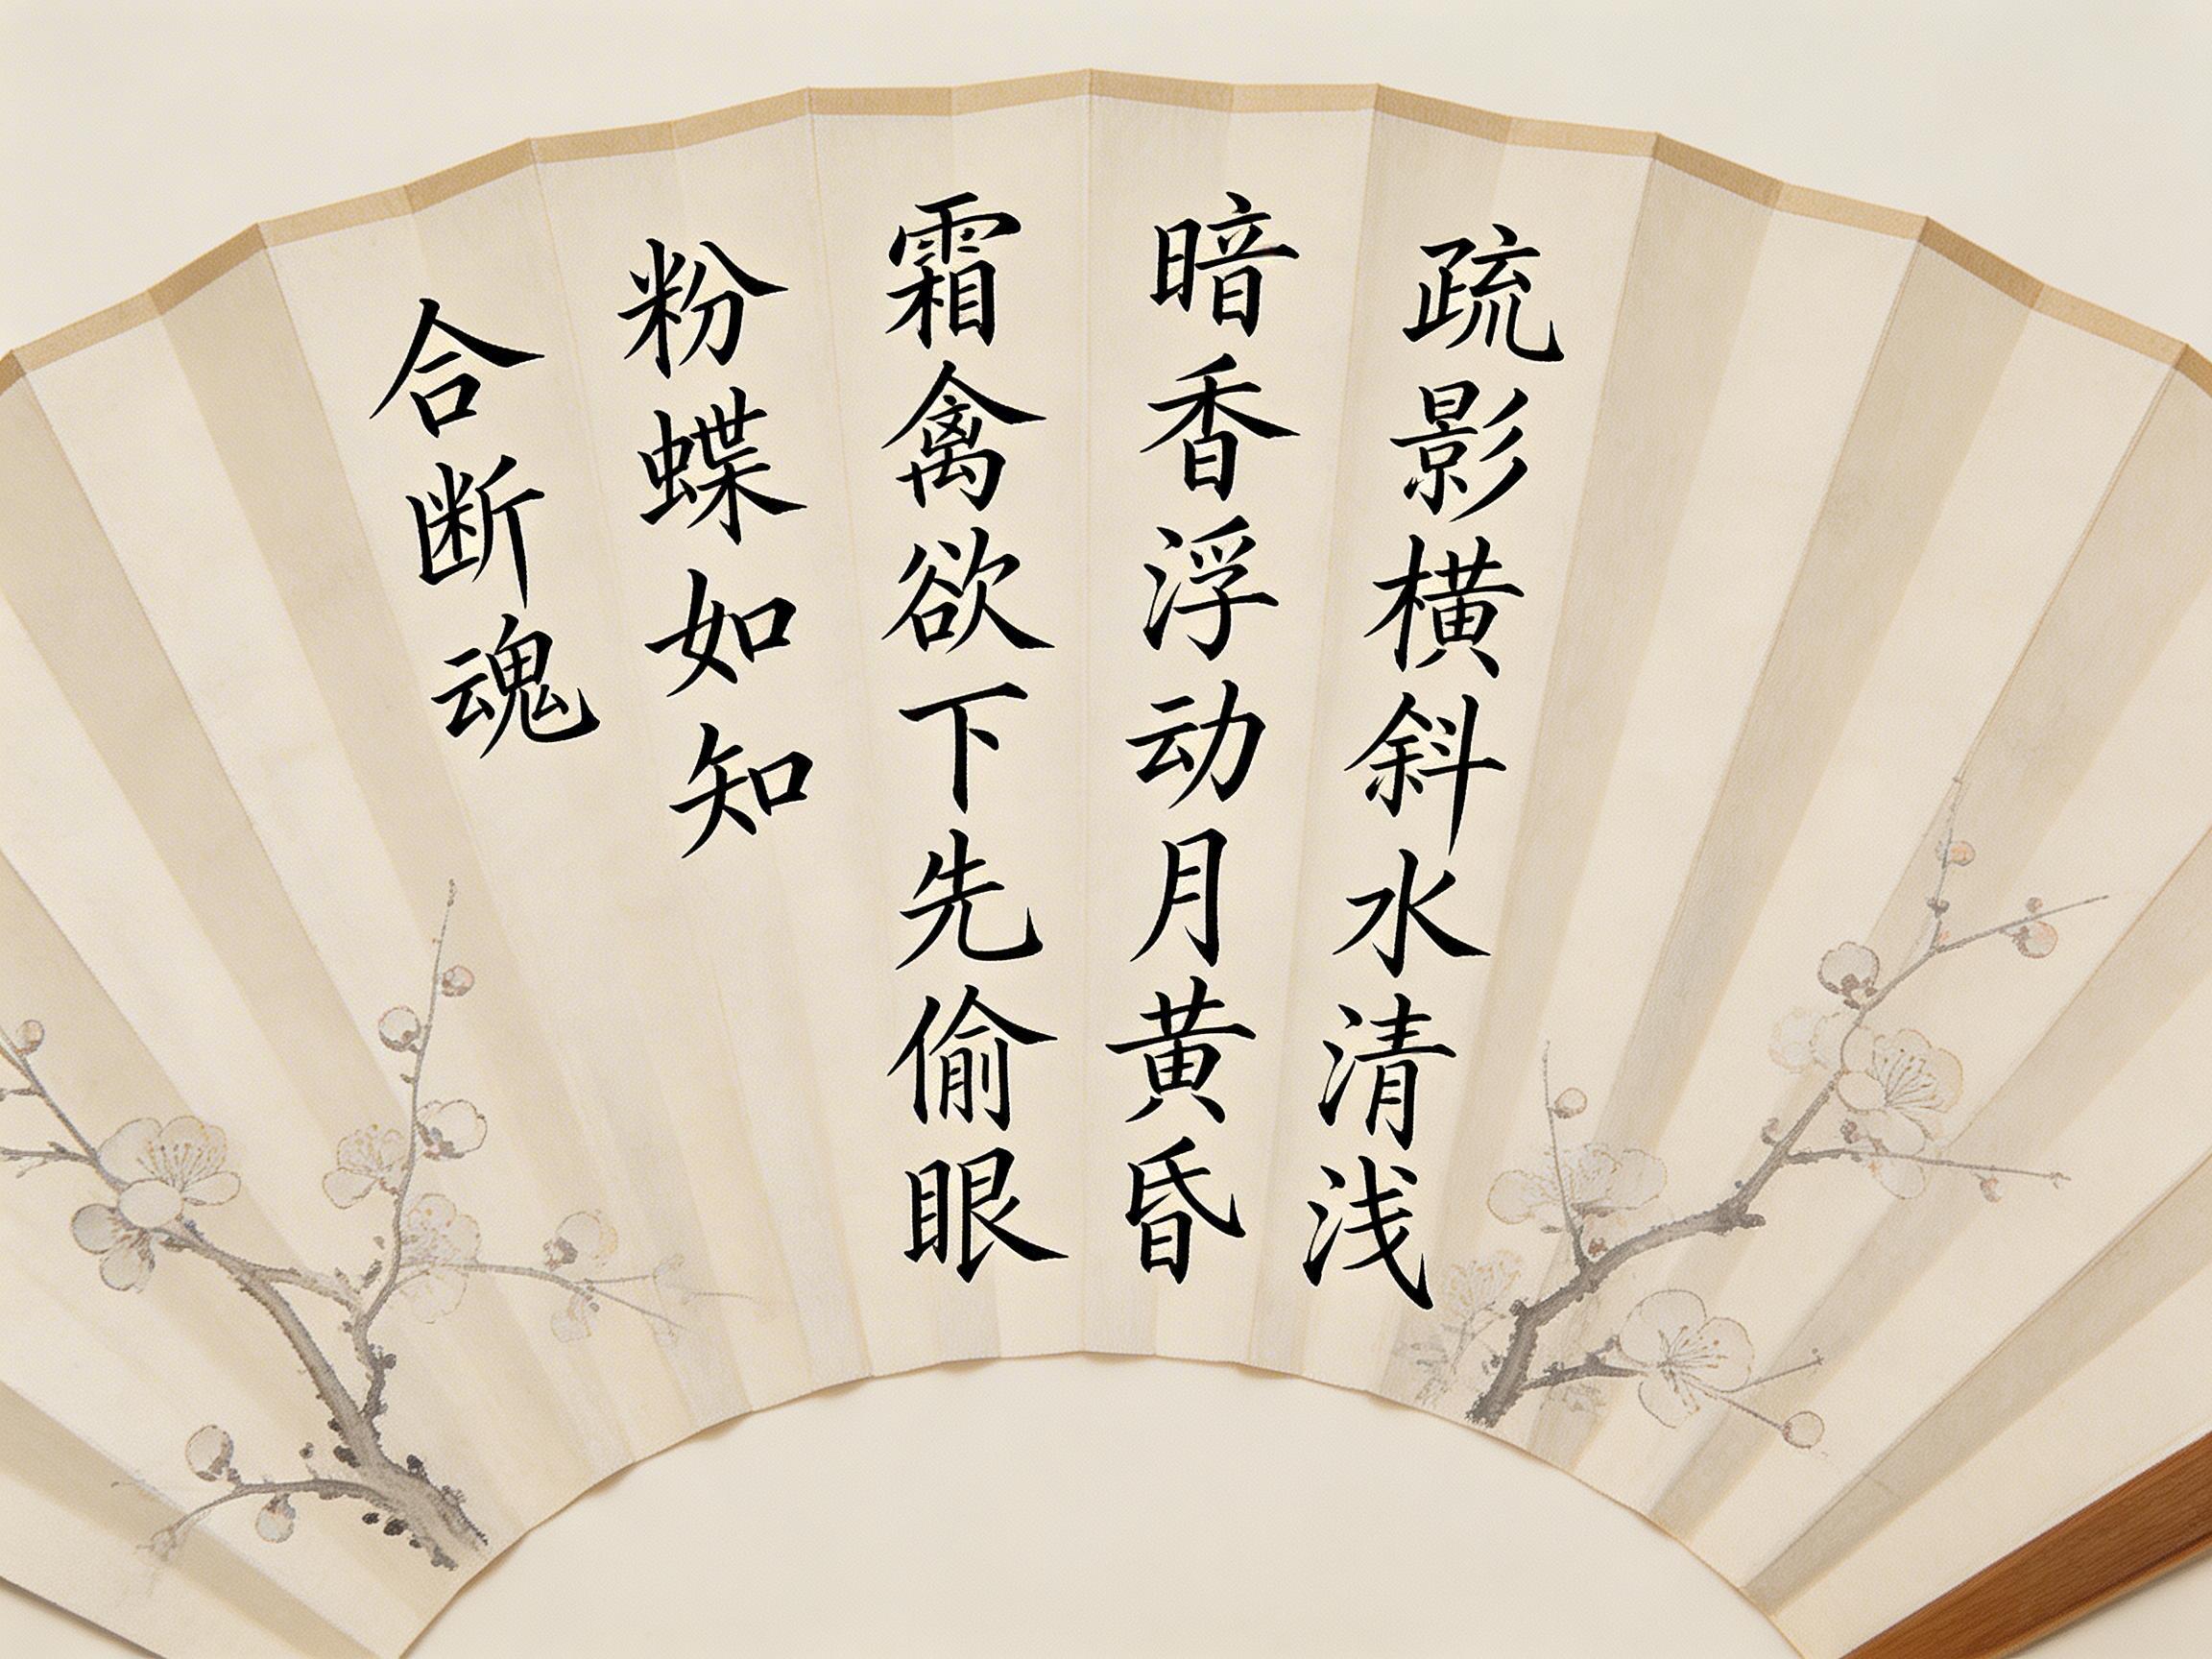 疏影横斜水清浅
暗香浮动月黄昏
霜禽欲下先偷眼
粉蝶如知
合断魂